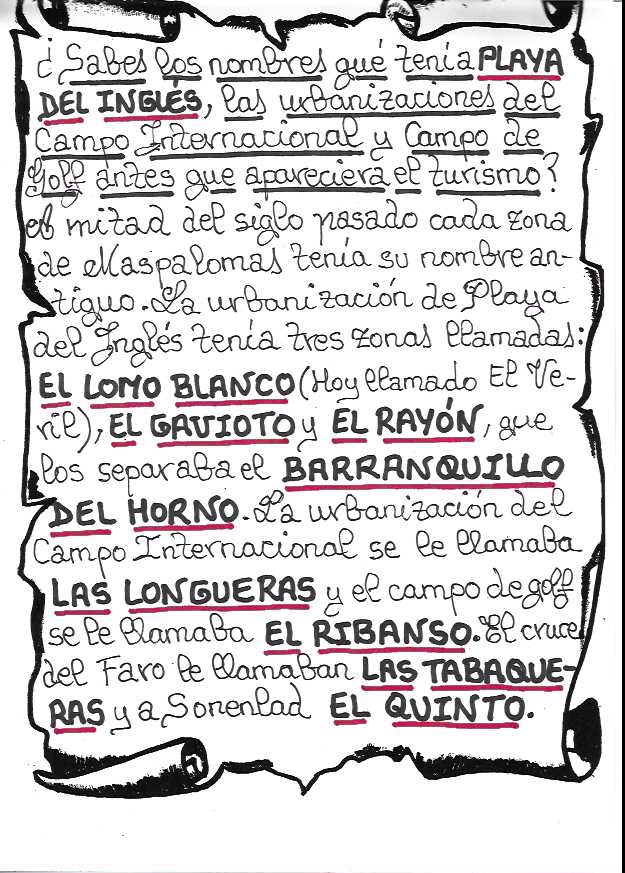 ¿Sabes los nombres qué tenía PLAYA
DEL INGLÉS, las urbanizaciones del
Campo Internacional y Campo de
Golf antes que apareciera el turismo?
A mitad del siglo pasado cada zona
de Maspalomas tenía su nombre an-
tiguo. La urbanización de Playa
del Inglés tenía tres zonas llamadas:
EL LOMO BLANCO (Hoy llamado El Ve-
ril), EL GAVIOTO y EL RAYÓN, que
los separaba el BARRANQUILLO
DEL HORNO. La urbanización del
Campo Internacional se le llamaba
LAS LONGUERAS y el campo de golf
se le llamaba EL RIBANSO. El cruce
del Faro le llamaban LAS TABAQUE-
RAS y a Sonenlad EL QUINTO.